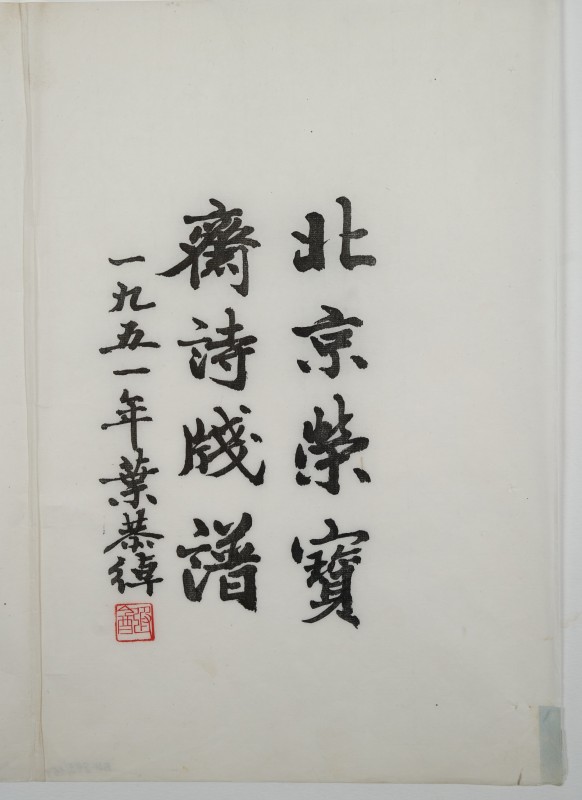 北京榮寶
齋詩牋譜
一九五一年葉恭綽